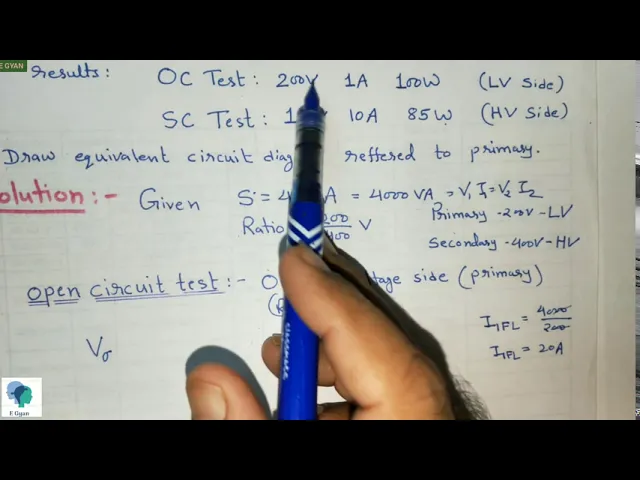 E GYAN
results: OC Test: 200V 1A 100W (LV Side)
SC Test: 10A 85W (HV Side)
Draw equivalent circuit reffered to primary.
olution:- Given S = 4 A = 4000 VA = V₁ I₁ = V₂ I₂
Ratio 200/400 V
Primary - 200V - LV
Secondary - 400V - HV
open circuit test:- side (primary)
I₁FL = 4000/200
I₁FL = 20A
V₀
E Gyan